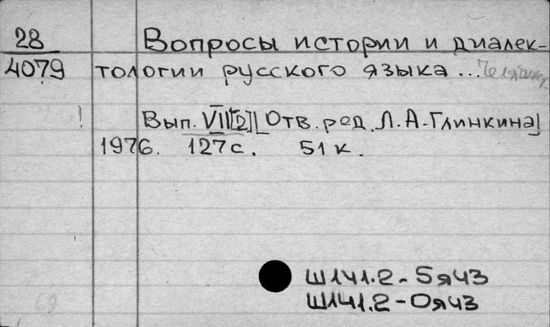 28 Вопросы истории и диалек-
4079 тологии русского языка ...
! Вып. VII[2] [Отв. ред. Л.А. Глинкина]
1976. 127с. 51 к.
Ш141.2-5я43
69 Ш141.2-0я43